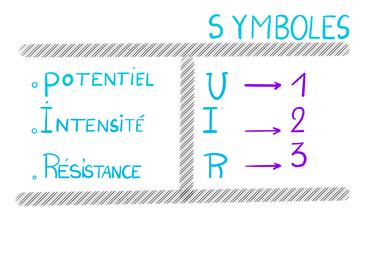 SYMBOLES
POTENTIEL U → 1
INTENSITÉ I → 2
RÉSISTANCE R → 3